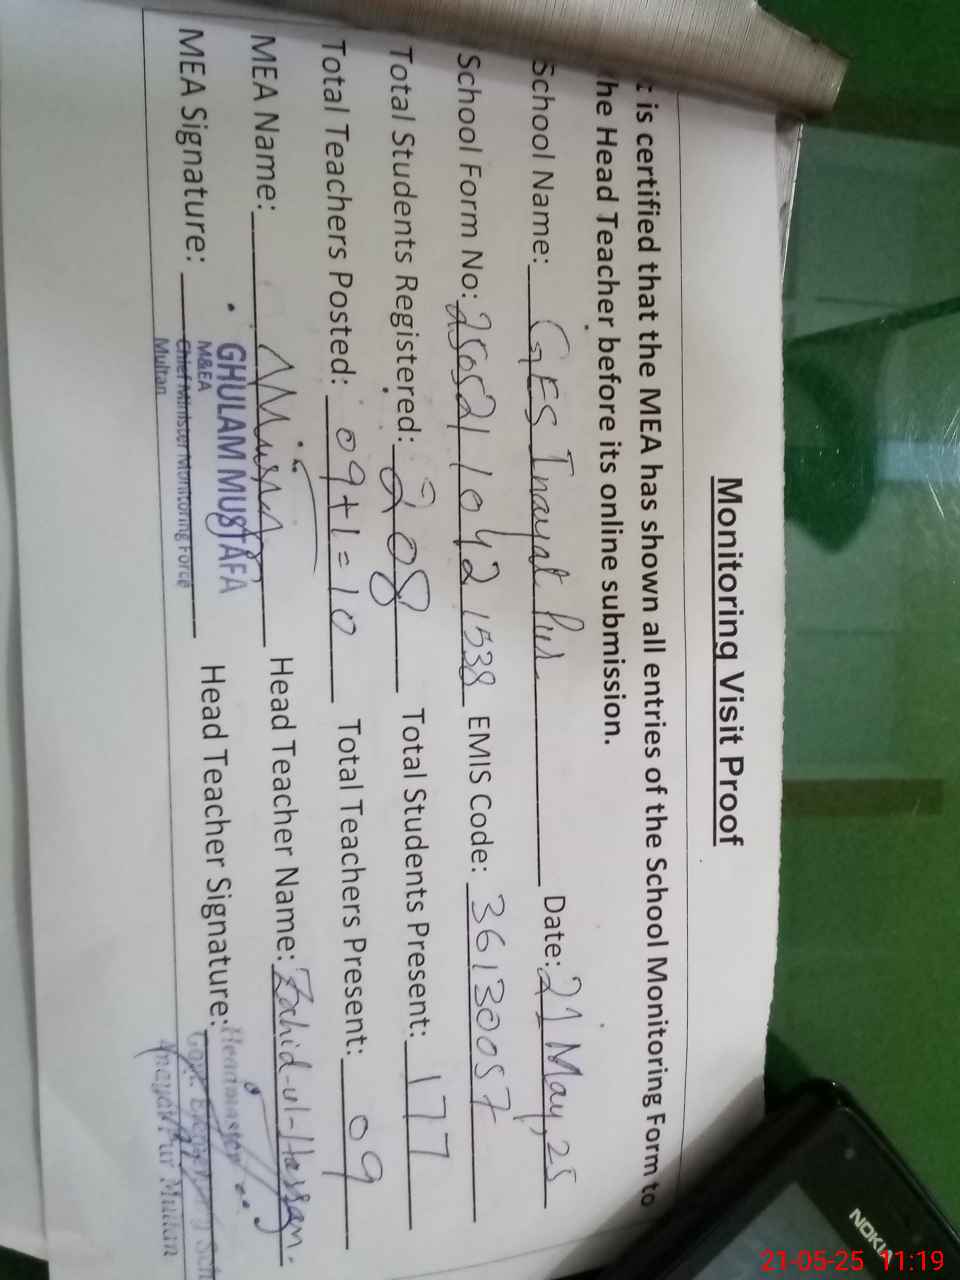 Monitoring Visit Proof
t is certified that the MEA has shown all entries of the School Monitoring Form to
he Head Teacher before its online submission.
School Name: GES Inayat Pur Date: 21 May, 25
School Form No: 2505211042 1538 EMIS Code: 36130057
Total Students Registered: 208 Total Students Present: 177
Total Teachers Posted: 09+1=10 Total Teachers Present: 09
MEA Name: Head Teacher Name: Zahid-ul-Hassan.
MEA Signature: Head Teacher Signature:
GHULAM MUSTAFA
M&EA
Chief Minister Monitoring Force
Multan
Headmaster
Govt. Elementary Sch
Inayat Pur Multan
NOKIA
21-05-25 11:19